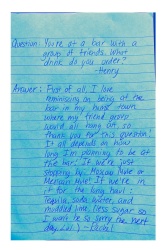 Question: You're at a bar with a
group of friends. What
drink do you order?
-Henry
Answer: First of all I love
reminiscing on being at the
bar in my house town
where my friend group
would all hang out so
Thank you for this question!
It all depends on how
long I'm planning to be at
the bar! If we're just
stopping by: Moscow Mule or
Mexican Mule! If we're in
it for the long haul:
Tequila, soda water, and
muddled lime (less sugar so
I won't be so sorry the next
day Lol) - Rachel